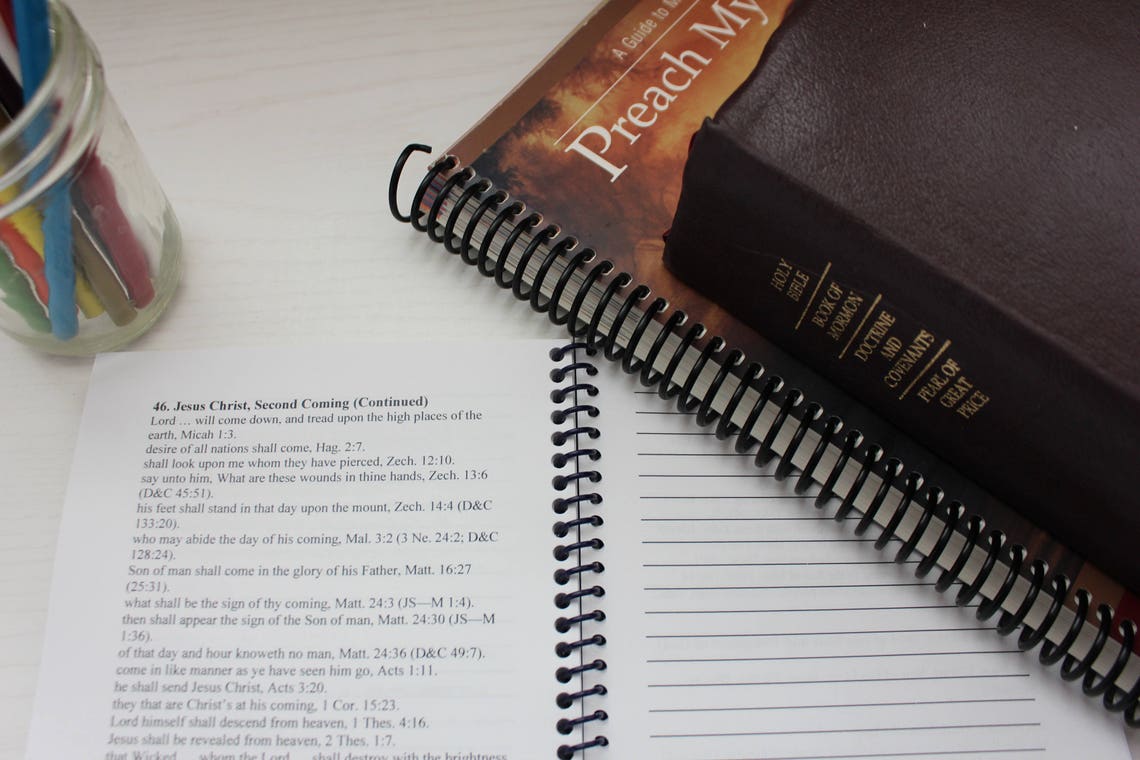 A Guide to M
Preach My
HOLY
BIBLE
BOOK OF
MORMON
DOCTRINE
AND
COVENANTS
PEARL OF
GREAT
PRICE
46. Jesus Christ, Second Coming (Continued)
Lord … will come down, and tread upon the high places of the
earth, Micah 1:3.
desire of all nations shall come, Hag. 2:7.
shall look upon me whom they have pierced, Zech. 12:10.
say unto him, What are these wounds in thine hands, Zech. 13:6
(D&C 45:51).
his feet shall stand in that day upon the mount, Zech. 14:4 (D&C
133:20).
who may abide the day of his coming, Mal. 3:2 (3 Ne. 24:2; D&C
128:24).
Son of man shall come in the glory of his Father, Matt. 16:27
(25:31).
what shall be the sign of thy coming, Matt. 24:3 (JS—M 1:4).
then shall appear the sign of the Son of man, Matt. 24:30 (JS—M
1:36).
of that day and hour knoweth no man, Matt. 24:36 (D&C 49:7).
come in like manner as ye have seen him go, Acts 1:11.
he shall send Jesus Christ, Acts 3:20.
they that are Christ's at his coming, 1 Cor. 15:23.
Lord himself shall descend from heaven, 1 Thes. 4:16.
Jesus shall be revealed from heaven, 2 Thes. 1:7.
that Wicked … whom the Lord … shall destroy with the brightness